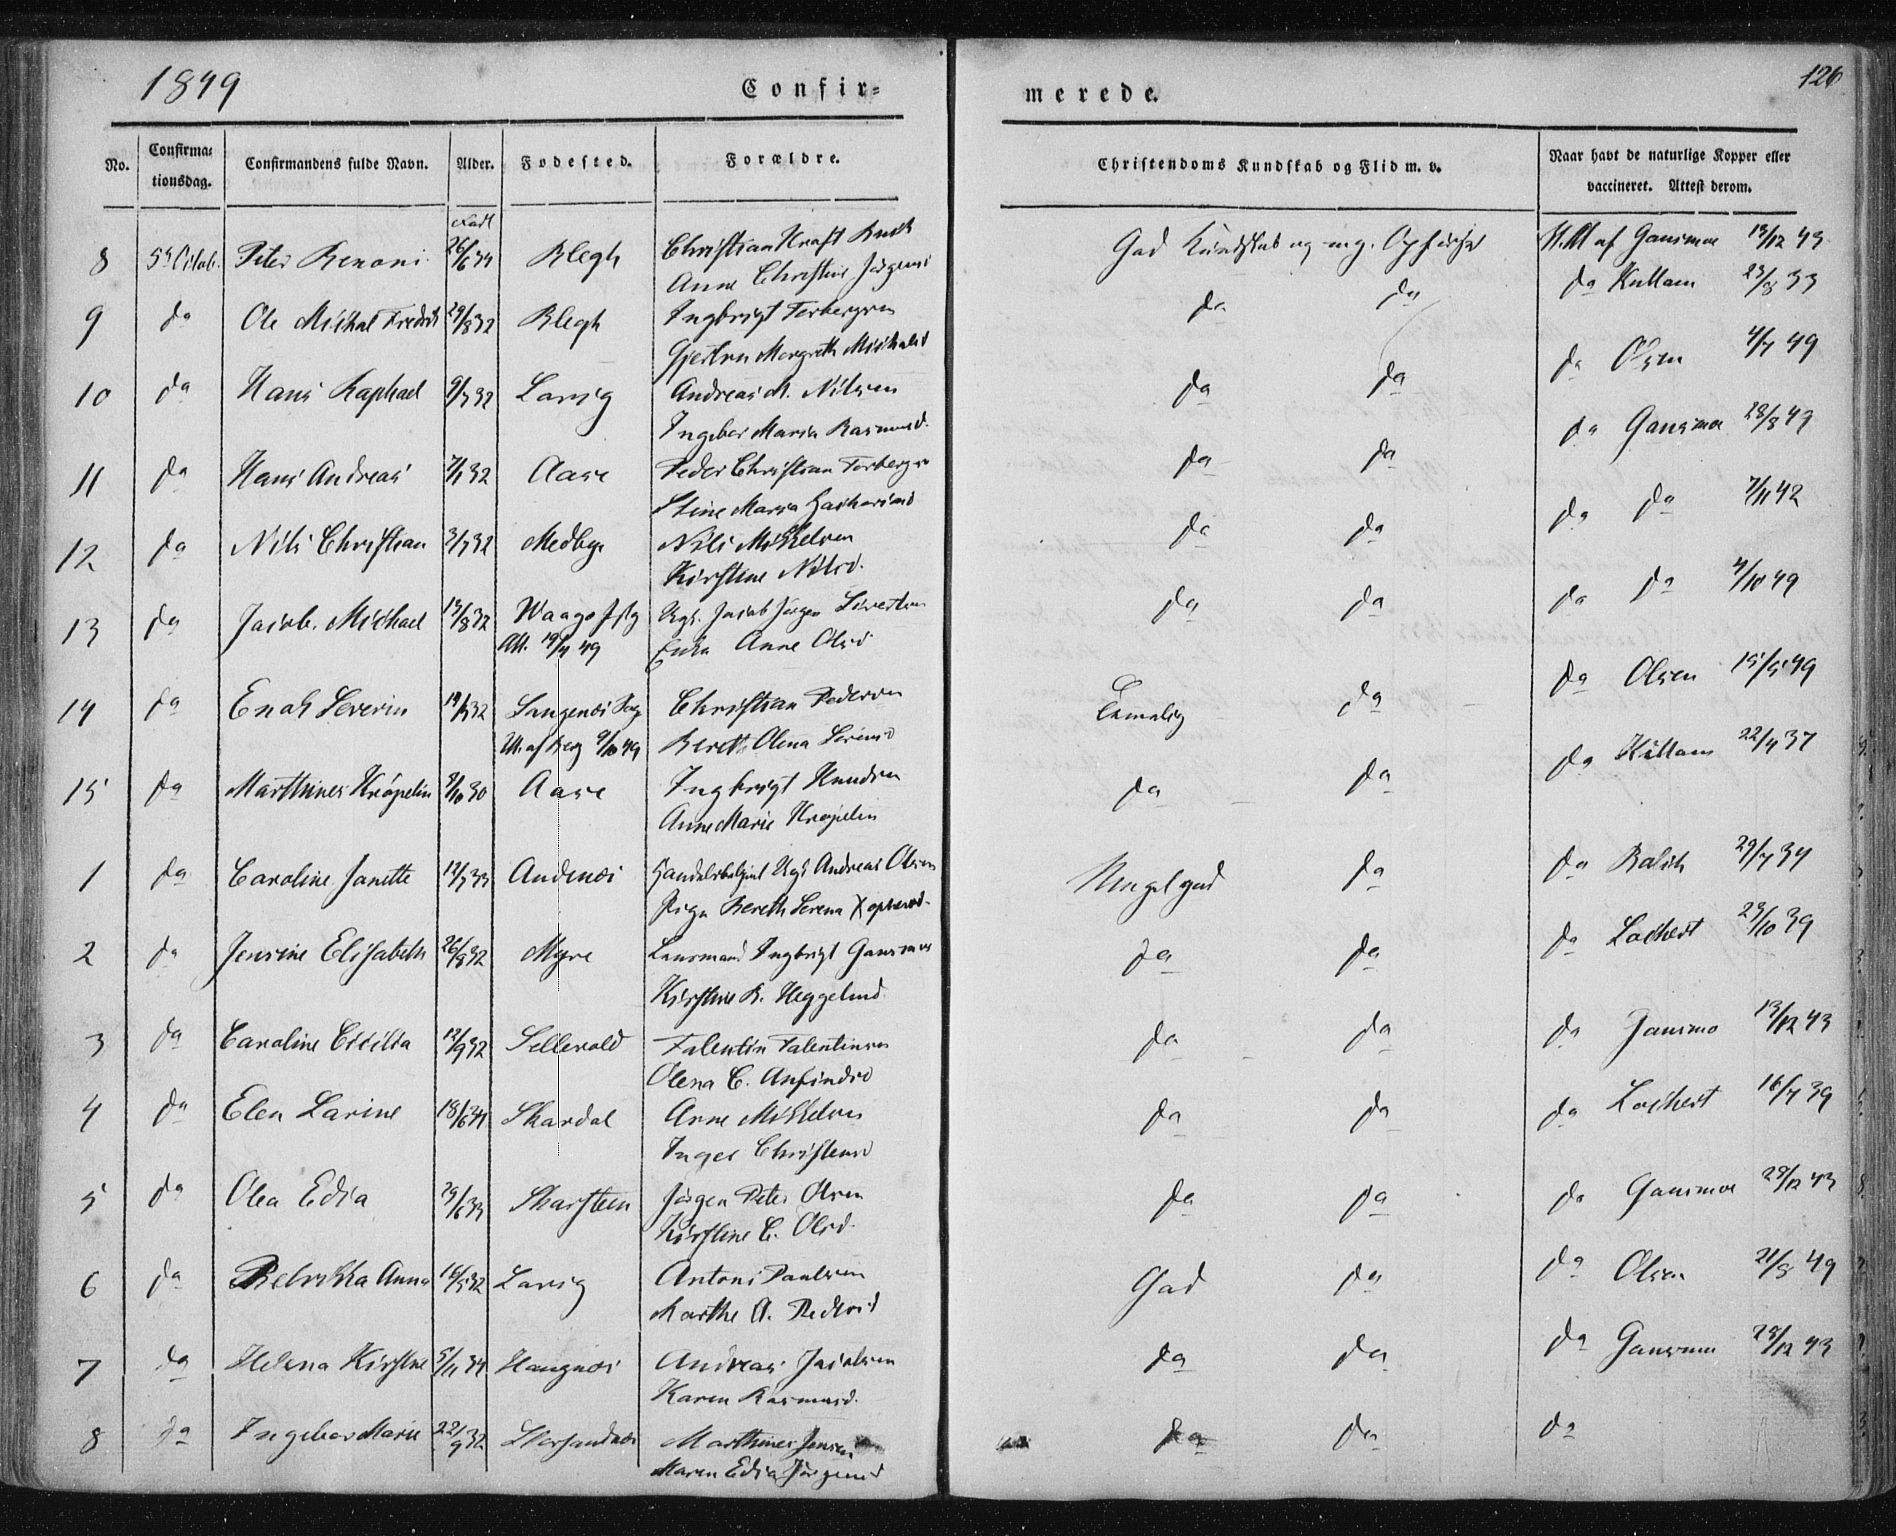 1849 Confir= merede. 126
No. Confirma=tionsdag. Confirmandens fulde Navn. Alder. Fodested. Forældre. Christendoms Kundskab og Flid m. v. Naar havt de naturlige Kopper eller vaccineret. Attest derom.
8 5te Octob. Peter Benoni 26/6 34 Blegh Christian Kraft God Kundskab og mg. af Gansmoe 13/12 43
Anne Christine
9 do Ole Michal Fredrik 29/8 32 Blegh Ingbrigt Torbergsen do do do Kullam 23/8 33
Margreth
10 do Hans Raphael 9/7 32 Lovig Andreas M. Nilsen do do do Olsen 4/7 49
Ingebor Maria Rasmusd.
11 do Hans Andreas 7/1 32 Aase Peder Christian do do do Gansmoe 28/8 43
Stine Maria
12 do Nils Christian 3/7 32 Medbye Nils Mikkelsen do do do do 7/11 42
Kirstine Nilsd.
13 do Jacob Michael 13/8 32 Jacob Jørgen do do do do 4/10 49
Att. 19/4 49 Anne Olsd
14 do Enok Severin 32 Christian Pedersen Temelig do do Olsen 15/5 49
af Berg 9/10 49 Bereth Olena
15 do Marthines Krøpelin 8/10 30 Aase Ingbrigt Knudsen do do do Kullam 22/4 37
Anne Marie Krøpelin
1 do Caroline Janette 12/7 33 Andenæs Andreas Olsen Meget god do do Balch 29/7 34
Bereth Serena
2 do Jensine Elisabeth 26/8 32 Myre Lensmand Ingbrigt Gansmoe do do do Lochert 23/10 39
Kirstine B. Heggelund
3 do Caroline Cicilia 12/9 32 Sellevold Falentin Falentinsen do do do Gansmo 13/12 43
Olena C. Anfindsd
4 do Elen Larine 18/6 34 Skardal Arne Mikkelsen do do do Lochert 16/7 39
Inger Christensd
5 do Olea Edia 29/6 33 Skarstein Jørgen Peter Olsen do do do Gansmoe 28/12 43
Kirstine C. Olsd.
6 do Rebekka Anna 16/5 32 Lovig Antoni Paulsen God do do Olsen 21/8 49
Marthe A. Pedersd
7 do Helena Kirstine 5/11 34 Haugnæs Andreas Jacobsen do do do Gansmoe 28/12 43
Karen Rasmusd.
8 do Ingebor Marie 22/9 32 Marthines Jensen do do do
Maren Edia Jørgensd